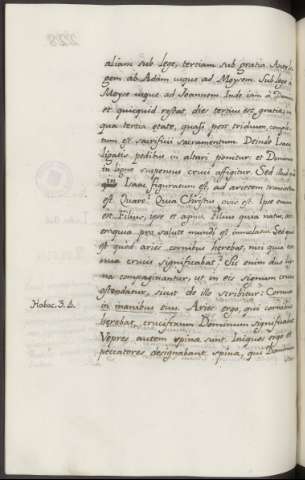 aliam sub lege, tertiam sub gratia. Ante le-
gem ab Adam usque ad Moysen. Sub lege, a
Moyse usque ad Joannem. Inde iam a Domino
et quicquid restat, dies tertius est gratiæ, in
qua tertia etate, quasi post triduum, comple-
tum est sacrificii sacramentum. Deinde Isaac
ligatis pedibus in altari ponitur: et Dominus
in ligno suspensus cruci affigitur. Sed illud quod
in Isaac figuratum est, ad arietem translatum
est. Quare? Quia Christus ovis est. Ipse enim
est Filius, ipse et agnus. Filius quia natus, ari-
es quia pro salute mundi est immolatus. Sed quid
est quod aries cornibus herebat, nisi quia cor-
nua crucis significabat? Sic enim duo lig-
na compaginantur, ut in eis signum crucis
ostendatur, sicut de illo scribitur: Cornua
Habac. 3. b.
in manibus eius. Aries ergo, qui cornibus
herebat, crucifixum Dominum significabat.
Vepres autem spinæ sunt. Iniquos ergo et
peccatores designabant spinæ, qui Dominum